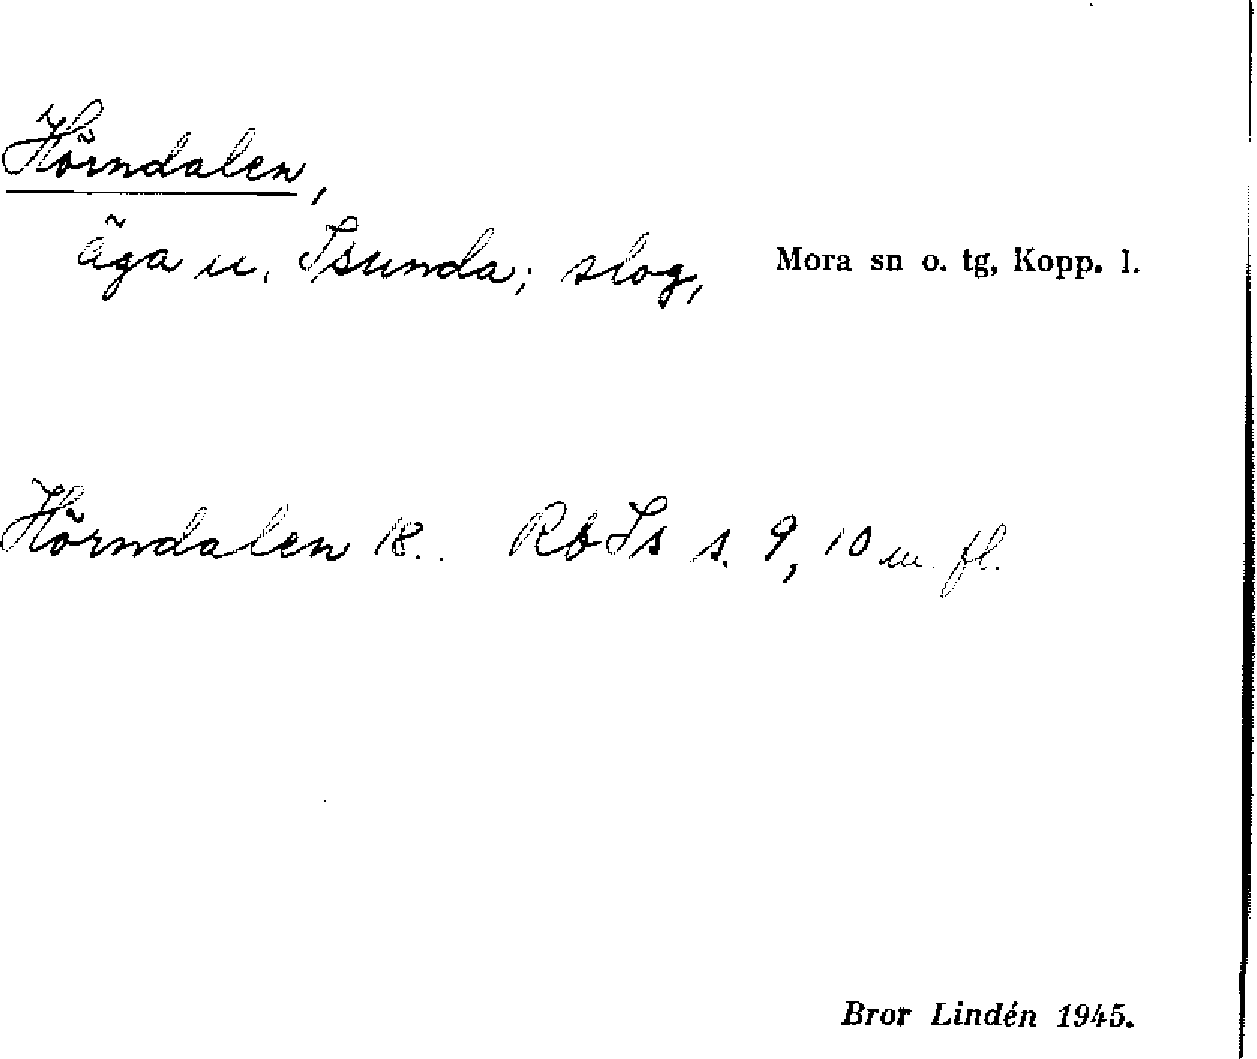 Hörndalen,
äga u. Isunda; slog, Mora sn o. tg, Kopp. l.
Hörndalen 18.. Rb Is s. 9, 10 m. fl.
Bror Lindén 1945.